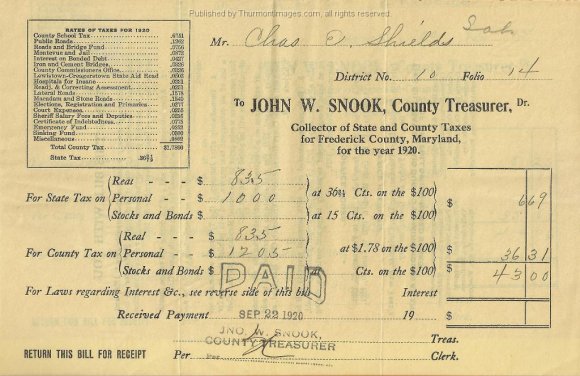 Published by Thurmontimages.com, all rights reserved
RATES OF TAXES FOR 1920
County School Tax .6741
Public Roads
Roads and Bridge Fund .0756
Montevue and Jail
Interest on Bonded Debt
Iron and Cement Bridges
County Commissioners Office
Lewistown-Creagerstown State Aid Road
Hospitals for Insane
Readj. & Correcting Assessment
Lateral Roads
Macadam and Stone Roads
Elections, Registration and Primaries
Court Expenses
Sheriff Salary Fees and Deputies
Certificate of Indebtedness
Emergency Fund
Sinking Fund
Miscellaneous
Total County Tax $1.7800
State Tax
Mr. Chas E. Shields
District No. 10 Folio 14
To JOHN W. SNOOK, County Treasurer, Dr.
Collector of State and County Taxes
for Frederick County, Maryland,
for the year 1920.
For State Tax on
Real - - - $ 835
Personal - $ 1000
Stocks and Bonds $
at 36¾ Cts. on the $100
at 15 Cts. on the $100
$ 6 69
For County Tax on
Real - - - $ 835
Personal - $ 1205
Stocks and Bonds $
at $1.78 on the $100
at Cts. on the $100
36 31
$ 43 00
PAID
For Laws regarding Interest &c., see reverse side of this bill Interest
Received Payment SEP 22 1920 19 $
JNO. W. SNOOK,
COUNTY TREASURER Treas.
RETURN THIS BILL FOR RECEIPT Per Per Clerk.